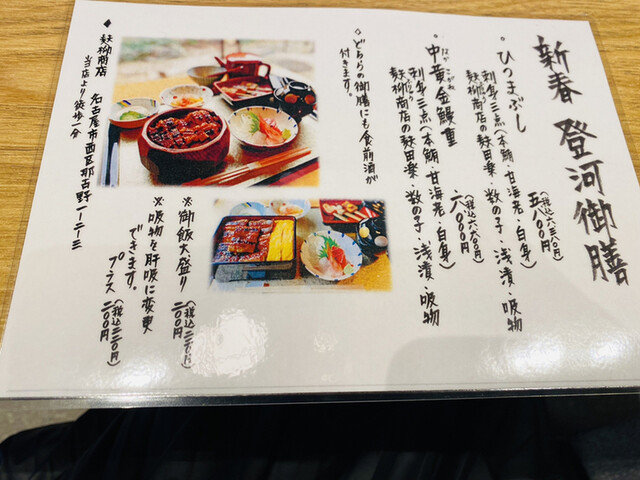 新春 登河御膳
・ひつまぶし
五八〇〇円
(税込六三八〇円)
刺身三点(本鮪・甘海老・白身)
麩柳商店の麩田楽・数の子・浅漬・吸物
・中黄金鰻重
六〇〇〇円
(税込六六〇〇円)
刺身三点(本鮪・甘海老・白身)
麩柳商店の麩田楽・数の子・浅漬・吸物
◇どちらの御膳にも食前酒が
付きます。
※御飯大盛り
二〇〇円
(税込二二〇円)
※吸物を肝吸に変更
できます。
プラス二〇〇円
(税込二二〇円)
◆麩柳商店 名古屋市西区那古野一ー二ー三
当店より徒歩一分